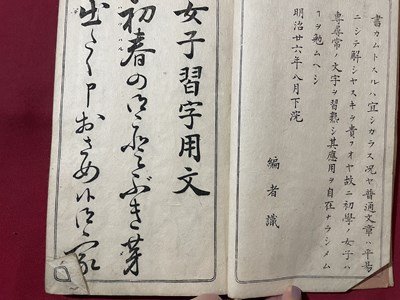 書カムトスルハ宜シカラス況ヤ普通文章ハ平易
ニシテ解シヤスキヲ貴フオヤ故ニ初學ノ女子ハ
專尋常ノ文字ヲ習熟シ其應用ヲ自在ナラシメム
ヿヲ勉ムヘシ
明治廿六年八月下浣
編者識
女子習字用文
初春の御ことぶき芽
出たく申おさめ候御家